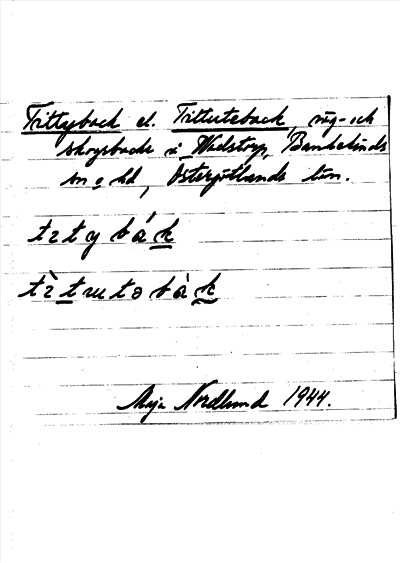 Tittyback el. Tittutsback, väg- och
skogsbacke i Wadstorp, Bankekinds
sn o hd, Östergötlands län.
tıtybák
tı̀tɯtəbàk
Maja Nordlund 1944.